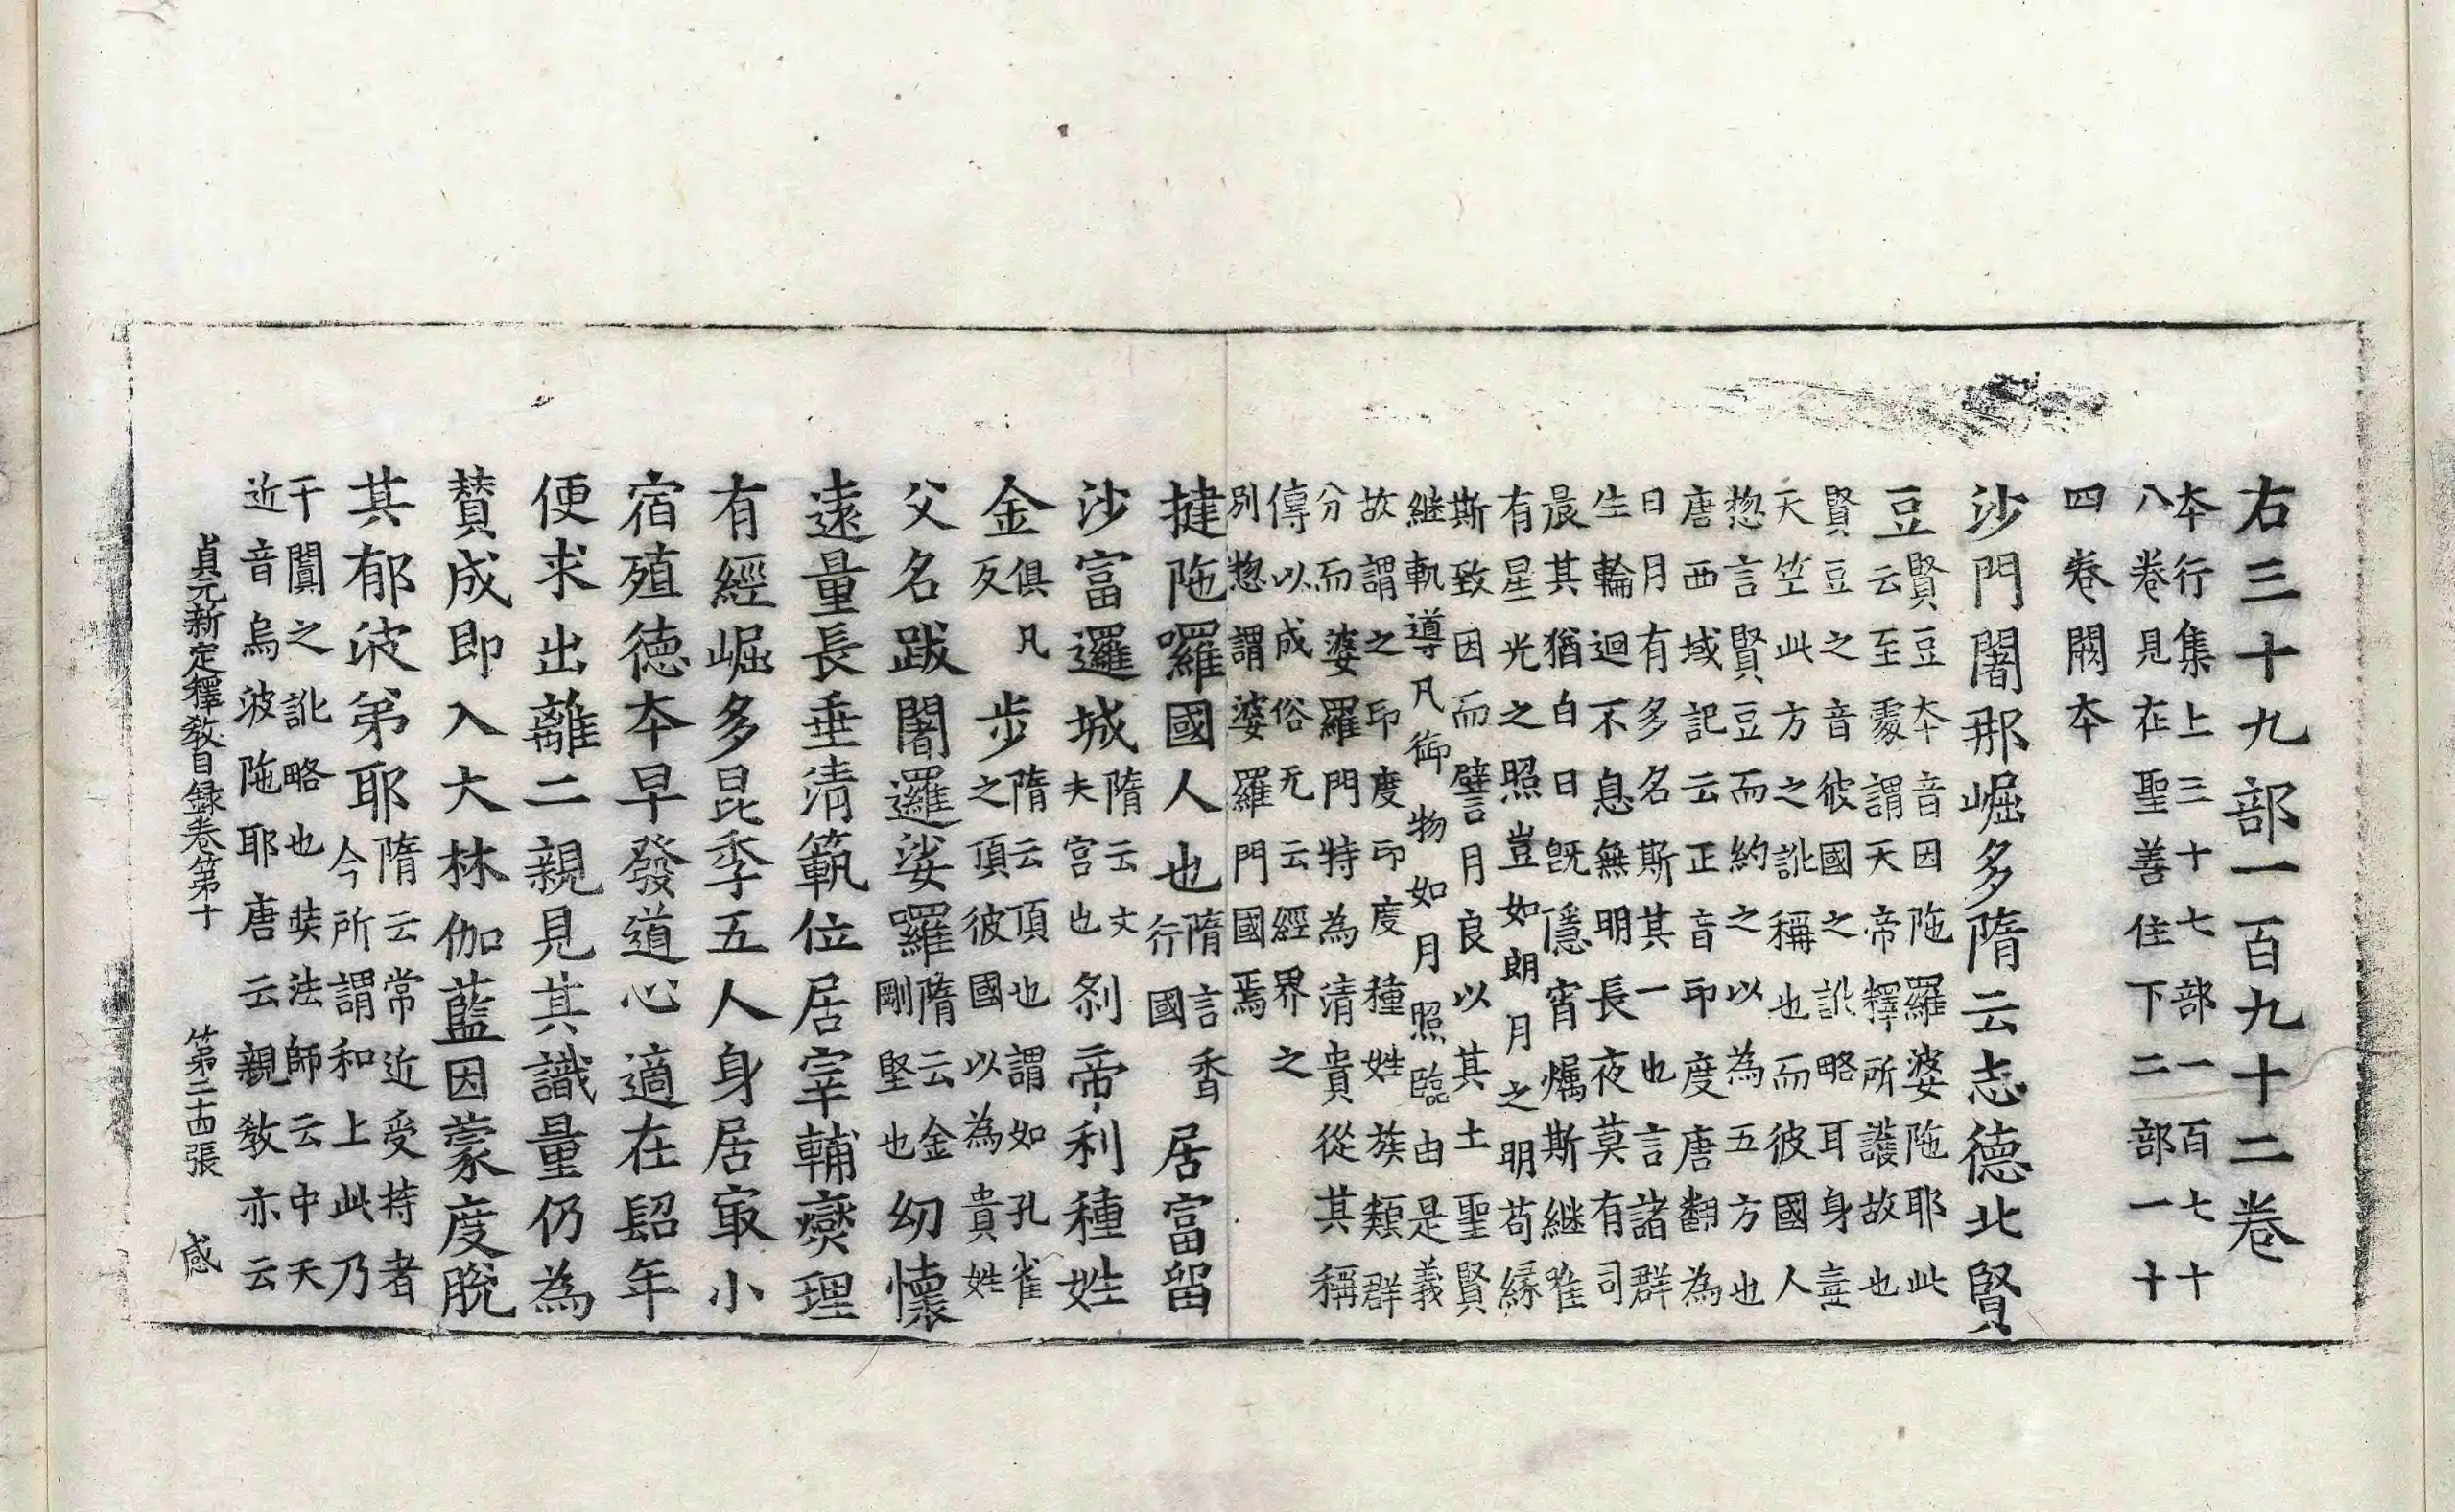 右三十九部一百九十二卷
夲行集上三十七部一百七十
八卷見在聖善住下二部一十
四卷闕夲
沙門闍那崛多隋云志德北賢
豆賢豆夲音因陁羅婆陁耶此
云至處謂天帝釋所護故也
賢豆之音彼國之訛略耳身毒
天竺此方之訛稱也而彼國人
惣言賢豆而約之以為五方也
唐西域記云正音印度唐翻為
月有多名斯其一也言諸群
生輪迴不息無明長夜莫有司
晨其猶白日旣隱宵燭斯継雖
有星光之照豈如朗月之明苟緣
斯致因而譬月良以其土聖賢
継軌導凡御物如月照臨由是義
故謂之印度印度種姓族類群
分而婆羅門特為清貴從其稱
傳以成俗无云經界之
別惣謂婆羅門國焉
揵陁囉國人也隋言香行國居富留
沙富邏城隋云丈夫宮也剎帝利種姓
金俱凡反步隋云頂也謂如孔雀之頂彼國以為貴姓
父名跋闍邏娑囉隋云金剛堅也幼懷
遠量長垂清範位居宰輔爕理
有經崛多昆季五人身居㝡小
宿殖德夲早發道心適在髫年
便求出離二親見其識量仍為
賛成即入大林伽藍因蒙度脫
其郁波弟耶隋云常近受持者今所謂和上此乃
于闐之訛略也奘法師云中天
近音烏波陁耶唐云親教亦云
貞元新定釋教目録卷第十 第二十四張 感